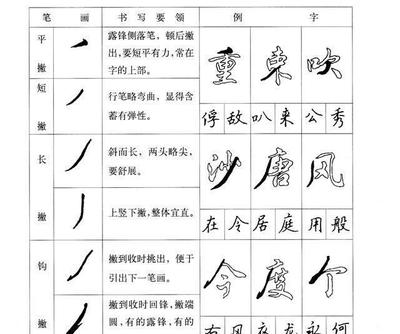 笔 画 书 写 要 领 例 字
平撇
露锋侧落笔，顿后撇
出，要短平有力，常在
字的上部。
重 吹
短撇
行笔略弯曲，显得含
蓄有弹性。
俘 敌 叭 来 公 秀
长撇
斜而长，两头略尖，
要舒展。
沙 唐 风
上竖下撇，整体宜直。
在 令 居 庭 用 般
钩撇
撇到收时挑出，便于
引出下一笔画。
今 度 个
撇到收时回锋，撇端
圆，有的露锋，有的
风 龙 永 何